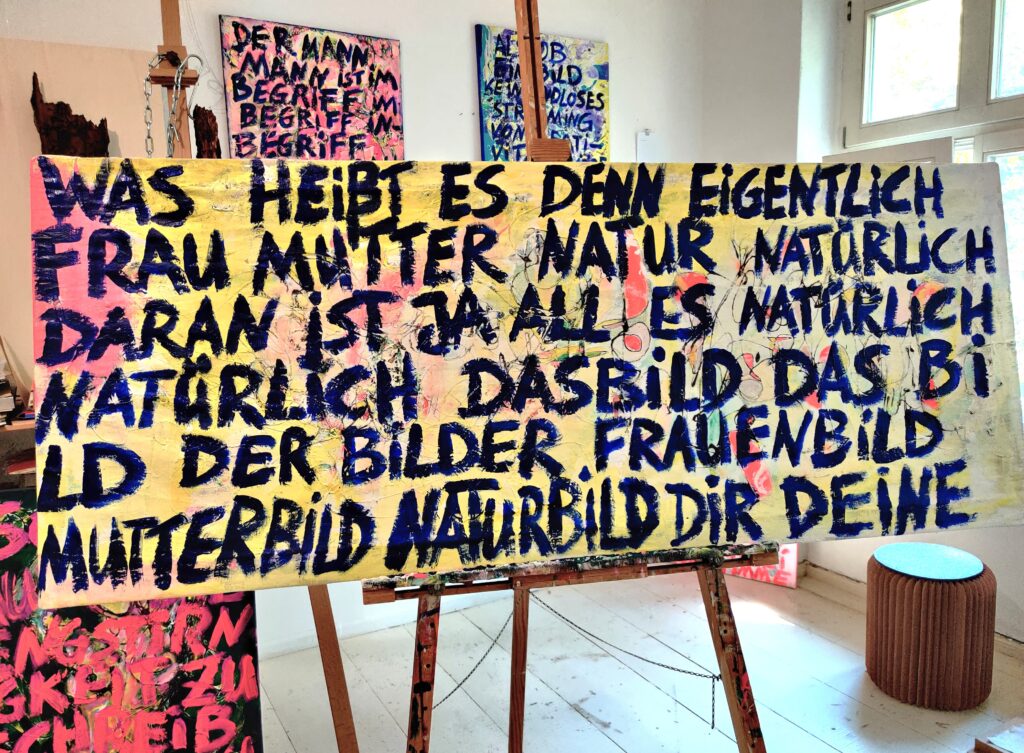 DER MANN
MANN IST IM
BEGRIFF IM
BEGRIFF IM
BEGRIFF
BILD
STRÖMING
WAS HEißT ES DENN EiGENTLiCH
FRAU MUTTER NATUR NATÜRLiCH
DARAN iST JA ALL ES NATÜRLiCH
NATÜRLiCH DASBiLD DAS Bi
LD DER BiLDER FRAUENBiLD
MUTTERBiLD NATURBiLD DiR DEiNE
NGSTIRN
GKEIT ZU
CHREIB